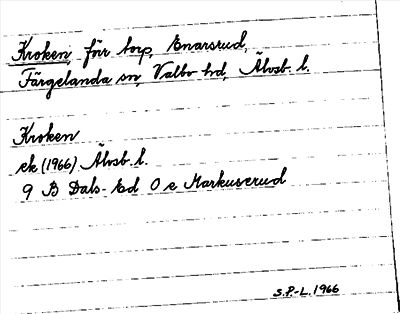 Kroken, förr torp, Enarsrud,
Färgelanda sn, Valbo hd, Älvsb. l.
Kroken
ek (1966) Älvsb. l.
9 B Dals-Ed O e Markuserud
S.P.-L. 1966